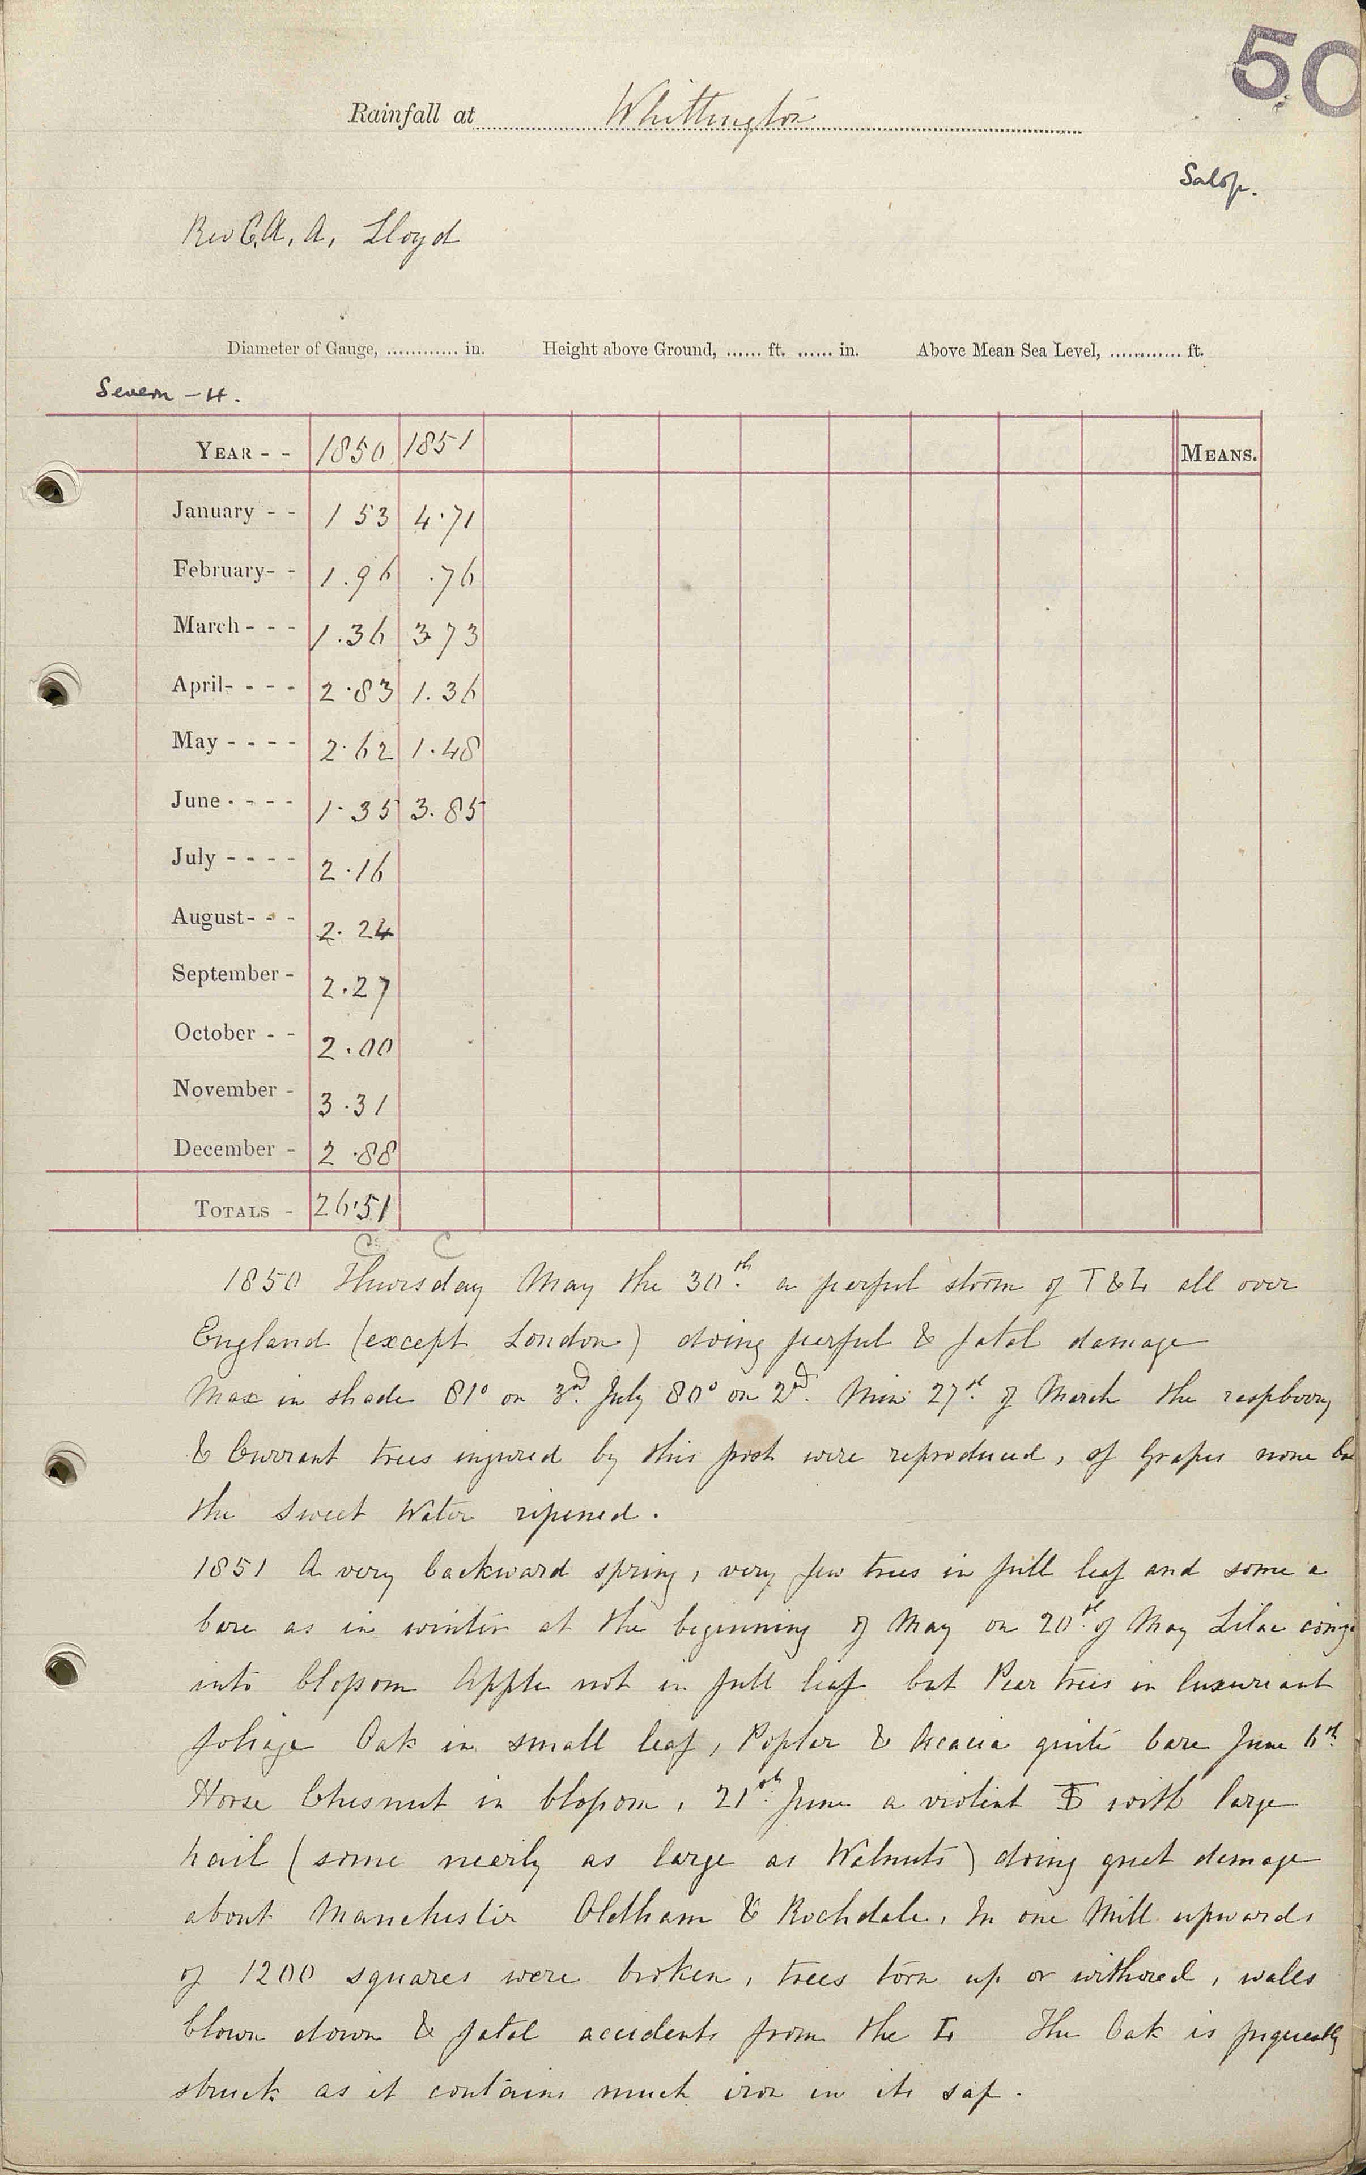 50
Rainfall at Whittington
Salop.
Rev C.A. A. Lloyd
Diameter of Gauge, ............ in. Height above Ground, ...... ft. ...... in. Above Mean Sea Level, ............ ft.
Severn - H.
YEAR - - 1850 1851 MEANS.
January - - 1 53 4.71
February- - 1.96 .76
March - - - 1.36 3.73
April- - - - 2.83 1.36
May - - - - 2.62 1.48
June - - - - 1.35 3.85
July - - - - 2.16
August- - - 2.24
September - 2.27
October - - 2.00
November - 3.31
December - 2.88
TOTALS - 26.51
C C
1850 Thursday May the 30th. a fearful storm of T & L all over
England (except London) doing fearful & fatal damage
Max in shade 81° on 3rd. July 80° on 2nd. Min 27th. of March the raspberry
& Currant trees injured by this frost were reproduced, of Grapes none
the Sweet Water ripened.
1851 A very backward spring, very few trees in full leaf and some a
bare as in winter at the beginning of May on 20th. of May Lilac
into blossom Apple not in full leaf but Pear trees in luxuriant
foliage Oak in small leaf, Poplar & Acacia quite bare June 6th.
Horse Chesnut in blossom, 21st. June a violent with large
hail (some nearly as large as Walnuts) doing great damage
about Manchester Oldham & Rochdale. In one Mill upwards
of 1200 squares were broken, trees torn up or withered, walls
blown down & fatal accidents from the L The Oak is frequently
struck as it contains much iron in its sap.